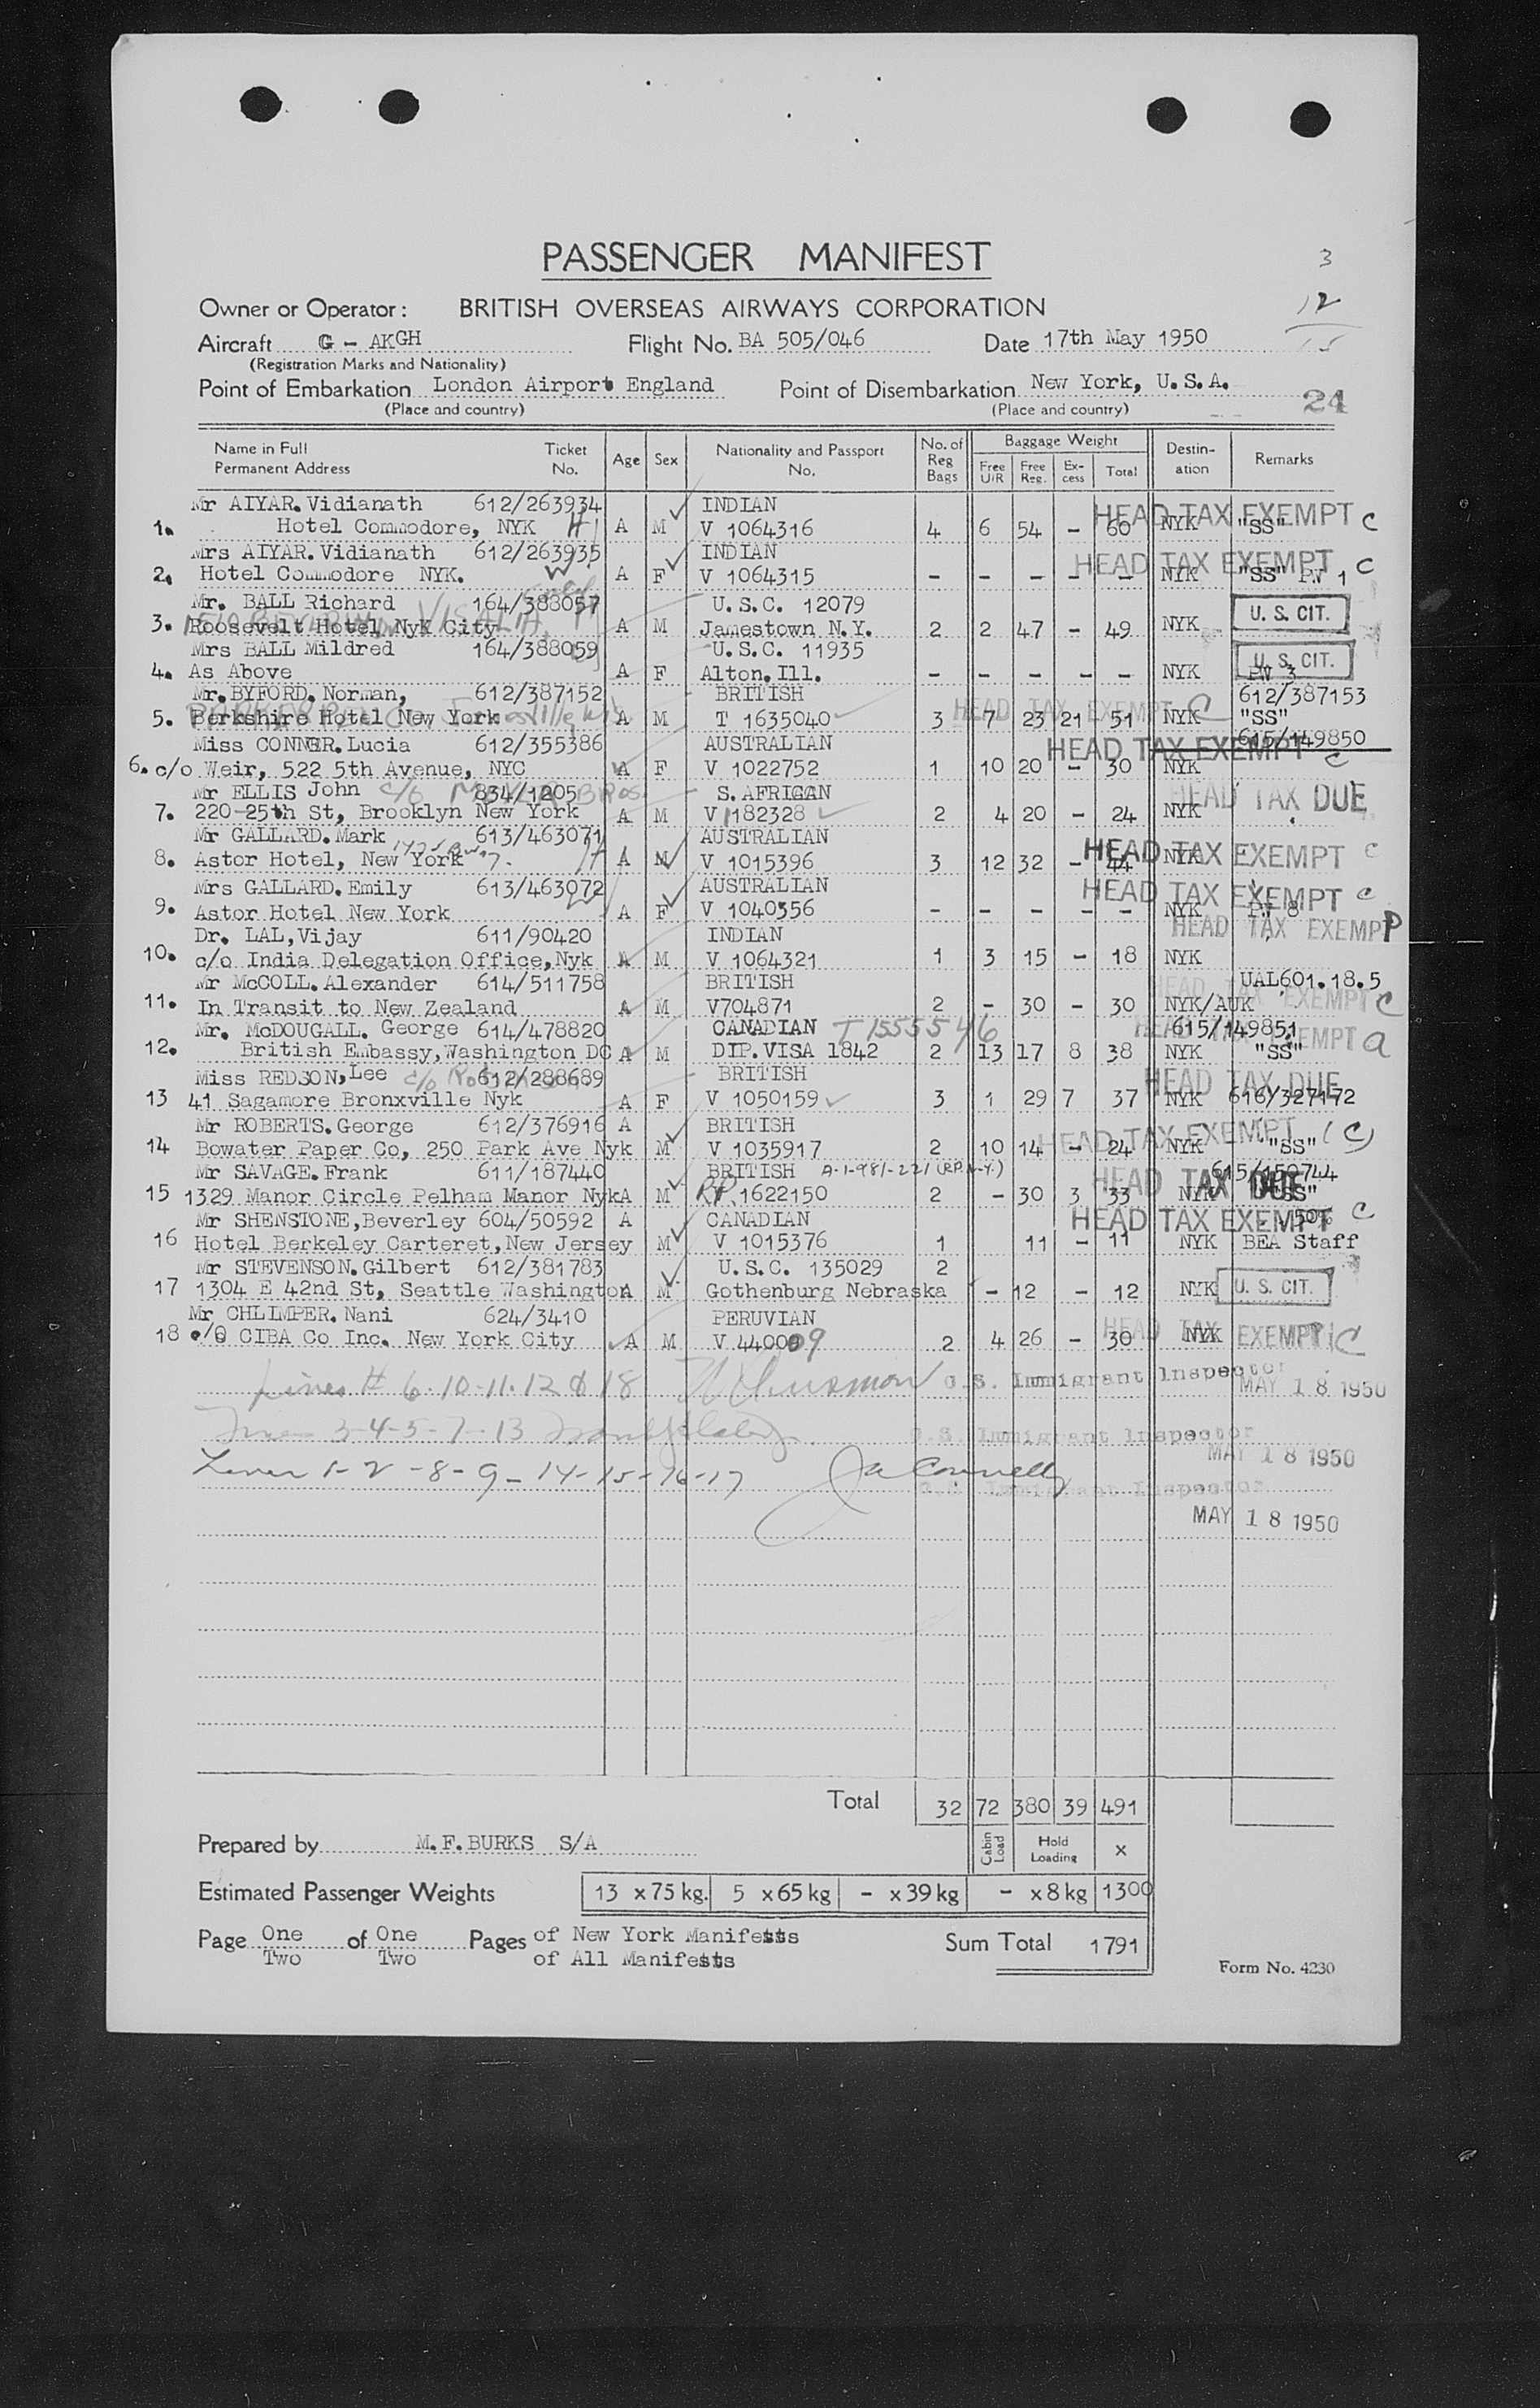 PASSENGER MANIFEST
3
12
15
Owner or Operator: BRITISH OVERSEAS AIRWAYS CORPORATION
Aircraft G - AKGH Flight No. BA 505/046 Date 17th May 1950
(Registration Marks and Nationality)
Point of Embarkation London Airport England Point of Disembarkation New York, U.S.A.
(Place and country) (Place and country) 24
Name in Full Permanent Address Ticket No. Age Sex Nationality and Passport No. No. of Reg Bags Baggage Weight Free U/R Free Reg. Ex-cess Total Destin-ation Remarks
Mr AIYAR. Vidianath 612/263934 INDIAN HEAD TAX EXEMPT C
1. Hotel Commodore, NYK H A M V 1064316 4 6 54 - 60 NYK "SS"
Mrs AIYAR. Vidianath 612/263935 INDIAN HEAD TAX EXEMPT C
2. Hotel Commodore NYK. W A F V 1064315 - - - - - NYK "SS" PW 1
Mr. BALL Richard 164/388057 U.S.C. 12079 U. S. CIT.
3. Roosevelt Hotel NyK City A M Jamestown N.Y. 2 2 47 - 49 NYK
Mrs BALL Mildred 164/388059 U.S.C. 11935 U. S. CIT.
4. As Above A F Alton. Ill. - - - - - NYK PW 3
Mr. BYFORD. Norman, 612/387152 BRITISH 612/387153
5. Berkshire Hotel New York A M T 1635040 3 7 23 21 51 NYK "SS" HEAD TAX EXEMPT C
Miss CONNER. Lucia 612/355386 AUSTRALIAN HEAD TAX EXEMPT 615/149850
6. c/o Weir, 522 5th Avenue, NYC A F V 1022752 1 10 20 - 30 NYK C
Mr ELLIS John c/o Bros 834/1205 S. AFRICAN HEAD TAX DUE
7. 220-25th St, Brooklyn New York A M V 1182328 2 4 20 - 24 NYK
Mr GALLARD. Mark 613/463071 AUSTRALIAN
8. Astor Hotel, New York H A M V 1015396 3 12 32 - 44 NYK HEAD TAX EXEMPT C
Mrs GALLARD. Emily 613/463072 AUSTRALIAN HEAD TAX EXEMPT C
9. Astor Hotel New York W A F V 1040356 - - - - - NYK PW 8
Dr. LAL, Vijay 611/90420 INDIAN HEAD TAX EXEMPT P
10. c/o India Delegation Office, Nyk A M V 1064321 1 3 15 - 18 NYK
Mr McCOLL. Alexander 614/511758 BRITISH UAL601.18.5
11. In Transit to New Zealand A M V704871 2 - 30 - 30 NYK/AUK HEAD TAX EXEMPT C
Mr. McDOUGALL. George 614/478820 CANADIAN T 1555546 615/149851 HEAD TAX EXEMPT a
12. British Embassy, Washington DC A M DIP. VISA 1842 2 13 17 8 38 NYK "SS"
Miss REDSON, Lee c/o 612/288689 BRITISH HEAD TAX DUE
13 41 Sagamore Bronxville Nyk A F V 1050159 3 1 29 7 37 NYK 616/327172
Mr ROBERTS. George 612/376916 A BRITISH HEAD TAX EXEMPT (C)
14 Bowater Paper Co, 250 Park Ave Nyk M V 1035917 2 10 14 - 24 NYK "SS"
Mr SAVAGE. Frank 611/187440 BRITISH A-1-981-221 (RP. N-Y.) 615/150744
15 1329 Manor Circle Pelham Manor Nyk A M RP. 1622150 2 - 30 3 33 NYK "SS" HEAD TAX DUE
Mr SHENSTONE, Beverley 604/50592 A CANADIAN HEAD TAX EXEMPT C 50%
16 Hotel Berkeley Carteret, New Jersey M V 1015376 1 11 - 11 NYK BEA Staff
Mr STEVENSON. Gilbert 612/381783 U.S.C. 135029 2
17 1304 E 42nd St, Seattle Washington A M Gothenburg Nebraska - 12 - 12 NYK U. S. CIT.
Mr CHLIMPER. Nani 624/3410 PERUVIAN
18 c/o CIBA Co Inc. New York City A M V 440009 2 4 26 - 30 NYK HEAD TAX EXEMPT C
Lines # 6-10-11-12 & 18 U.S. Immigrant Inspector
MAY 18 1950
Lines 3-4-5-7-13 U.S. Immigrant Inspector
MAY 18 1950
Lines 1-2-8-9-14-15-16-17 JA Connelly U.S. Immigrant Inspector
MAY 18 1950
Total 32 72 380 39 491
Prepared by M.F. BURKS S/A Cabin Load Hold Loading x
Estimated Passenger Weights 13 x 75 kg. 5 x 65 kg - x 39 kg - x 8 kg 1300
Page One of One Pages of New York Manifests Sum Total 1791
Two Two of All Manifests
Form No. 4230